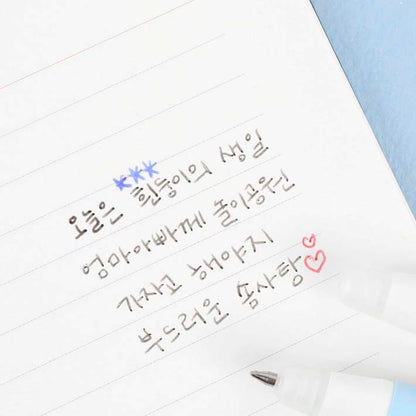 오늘은 흰둥이의 생일
엄마아빠께 놀이공원
가자고 해야지
부드러운 솜사탕